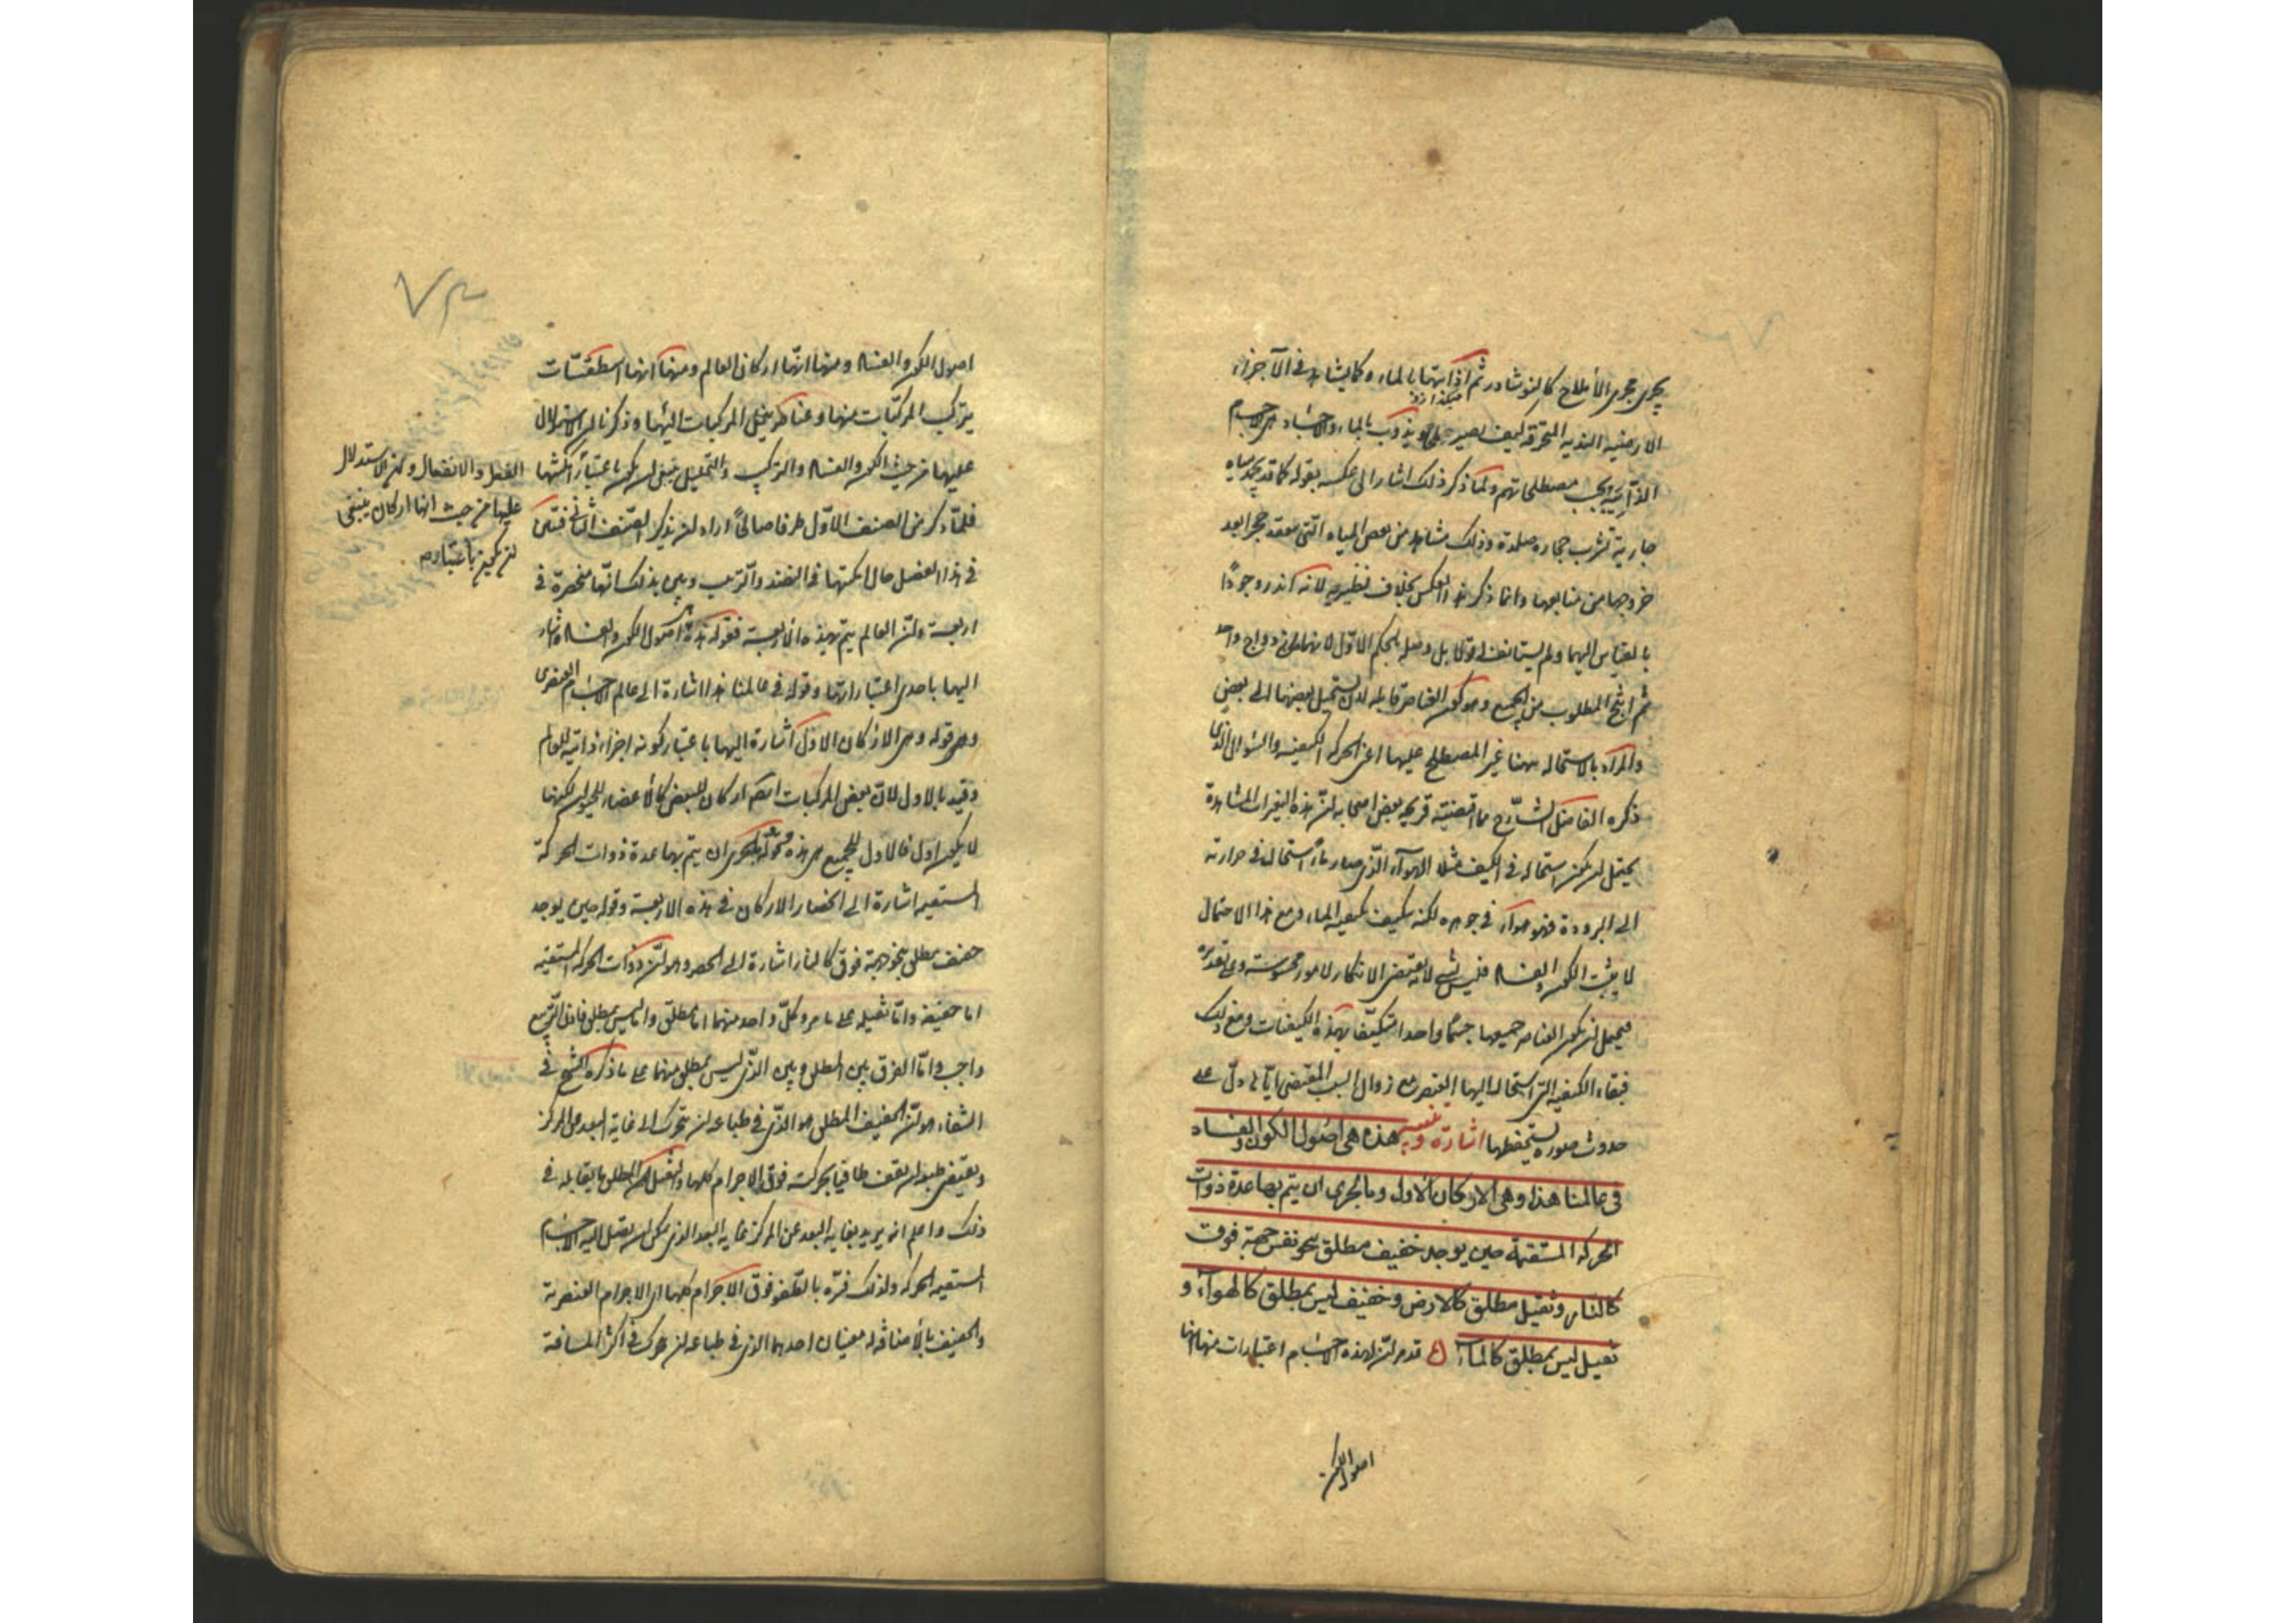 يجرى مجرى الأملاح كالنوشادر ثم اذابتها بالماء كما يشاهد فى الآجزاء
الارضية النديه المحترقة كيف تصير ملحا ويذوب بالماء والاجساد هى الاجسام
الذآئبة بحسب مصطلحاتهم ولما ذكر ذلك اشار الى عكسه بقوله كما قد يجمد مياه
جارية تشرب حجارة صلدة وذلك مشاهد من بعض المياه التى تنعقد حجرا بعد
خروجها من منابعها وانما ذكر هذا العكس بخلاف نظيريه لانه اندر وجودًا
بالقياس اليهما ولم يستأنف له قولا بل وصله بالحكم الاوّل لانهما من ازدواج واحد
ثم انتج المطلوب من الجميع وهو كون العناصر قابله لان يستحيل بعضها الى بعض
والمراد بالاستحاله ههنا غير المصطلح عليها اعنى الحركه الكيفيه والسؤال الذى
ذكره الفاضل الشارح مما اقتضته قريحه بعض اصحابه لن هذه التغيرات المشاهدة
يحتمل لن يكون استحاله فى الكيف مثلا الهوآء الذى صار مآءً استحال فى حرارته
الى البرودة فهو هوآء فى جوهره لكنه تكيف بكيفيه الماء ومع هذا الاحتمال
لا يثبت الكون والفساد فليس بشى لانه يقتضى الانكار لامور محسوسة وعلى تقديره
فيحتمل لن يكون العناصر جميعها جسمًا واحدا يتكيّف بهذه الكيفيات ومع ذلك
فبقاء الكيفيه التى استحال اليها العنصر مع زوال السبب المقتضى ايّاها دلّ على
حدوث صوره يستحفظها اشارة وتنبيه هذه هى اصول الكون والفساد
فى عالمنا هذا وهى الاركان الاول وما لحرى ان يتم بها عدة ذوات
الحركه المستقيمة حين يوجد خفيف مطلق نحو نفس جهة فوق
كالنار وثقيل مطلق كالارض وخفيف ليس بمطلق كالهوآء و
ثقيل ليس بمطلق كالمآء قد مر لن لهذه الاجسام اعتبارات منها انها
اصول الكون
اصول الكون والفساد ومنها انّها اركان العالم ومنها انها اسطقسّات
يتركب المركبّات منها وعناصر ينحل المركبات اليها وذكرنا لن الاستدلال
عليها من حيث الكون والفساد والتركيب والتحليل ينبغى لن يكون باعتبار
فلمّا ذكر من الصنف الاوّل طرفا صالحًا اراد لن يذكر الصنف الثانى فتبين
فى هذا الفصل حال امكنتها فى النضد والترتيب وبين بذلك انّها منحصرة فى
اربعة ولن العالم يتم بهذه الاربعة فقوله هذه اصول الكون والفساد اشار
اليها باحدى اعتباراتها وقوله فى عالمنا هذا اشارة الى عالم الاجسام العنصرى
وقوله وهى الاركان الاول اشارة اليها باعتبار كونه اجزاء ذاتيه للعالم
وقيد بالاول لان بعض المركبات ايضا اركان للبعض كالأعضاء للحيوان لكنها
لا يكون اول فالاول للجميع هى هذه وقوله بالحرى ان يتم بها عدة ذوات الحركة
المستقيمه اشارة الى انحصار الاركان فى هذه الاربعة وقوله حين يوجد
خفيف مطلق ينحو جهة فوق كالنار اشارة الى الحصر وهو لن ذوات الحركه المستقيمه
اما خفيفه وامّا ثقيله على ما مر وكلّ واحد منهما امّا مطلق واما ليس بمطلق فاذن التربيع
واجب وامّا الفرق بين المطلق وبين الذى ليس بمطلق منهما على ما ذكره الشيخ فى
الشفاء هو لن الخفيف المطلق هو الذى فى طباعه لن يتحرك الى غاية البعد من المركز
ويقتضى طبعه لن يقف طافيا بحركته فوق الاجرام كلها والثقيل المطلق ما يقابله فى
ذلك واعلم انه يريد بغايه البعد عن المركز غايه البعد الذى يمكن لن يصل اليه الاجسام
المستقيمه الحركه ولذلك فسّره بالطفو فوق الاجرام كلها اى الاجرام العنصرية
والخفيف بالأضافه له معنيان احدهما الذى فى طباعه لن يتحرك فى اكثر المسافة
الفعل والانفعال وكون الاستدلال
عليها من حيث انها اركان ينبغى
لن يكون باعتبار